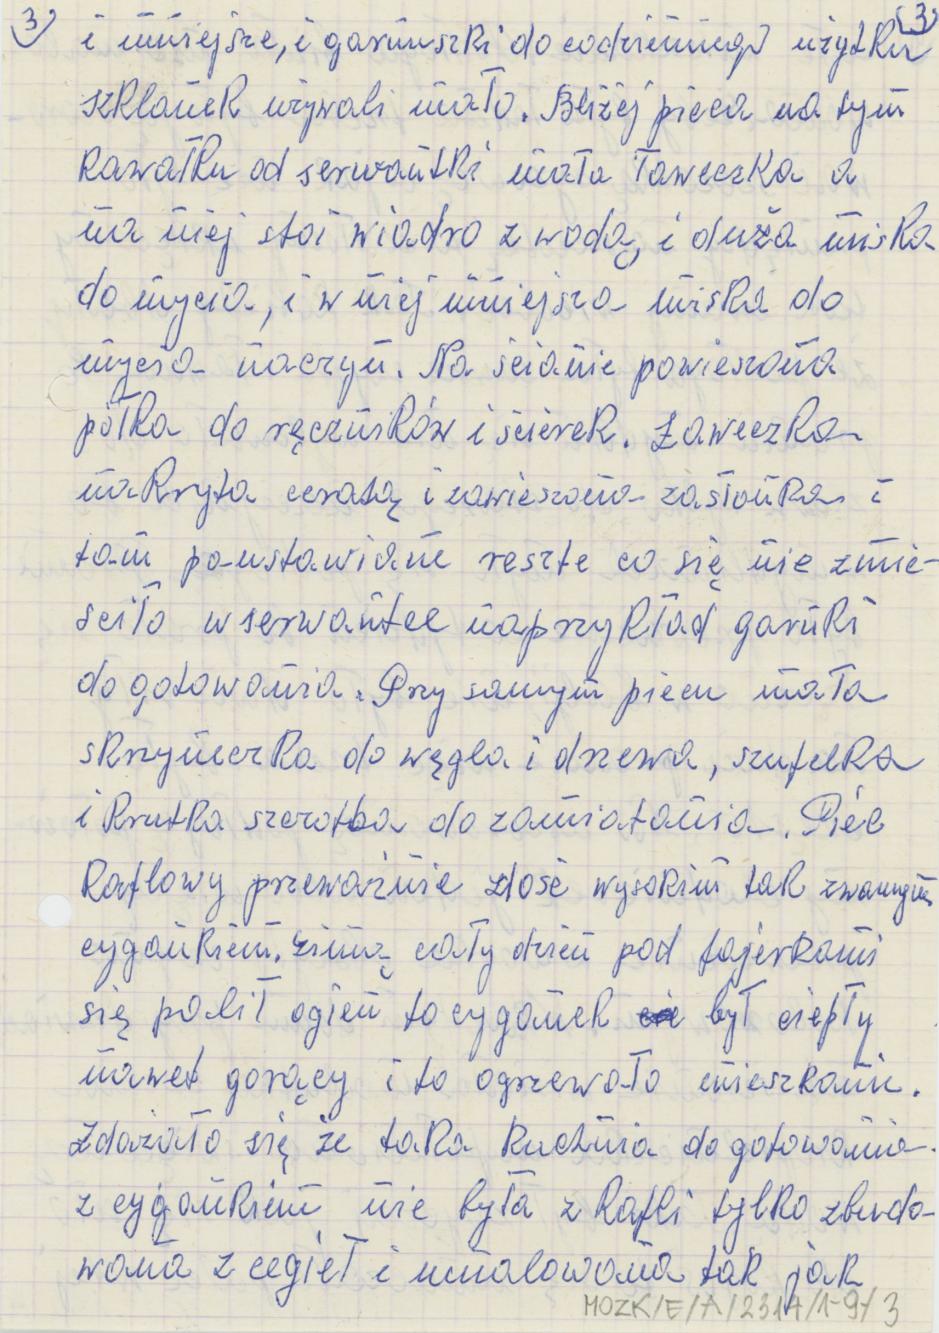 3) (3)
i mniejsze, i garnuszki do codziennego użytku
szklanek używali mało. Bliżej pieca na tym
kawałku od serwantki mała ławeczka a
na niej stoi wiadro z wodą, i duża miska
do mycia, i w niej mniejsza miska do
mycia naczyń. Na ścianie powieszona
półka do ręczników i ścierek. Ławeczka
nakryta ceratą i zawieszona zasłonka i
tam poustawiane reszte co się nie zmie-
ściło w serwantce naprzykład garnki
do gotowania. Przy samym piecu mała
skrzyneczka do węgla i drzewa, szufelka
i krutka szczotka do zamiatania. Piec
kaflowy przeważnie zdość wysokim tak zwanym
cygankiem. Zimą cały dzień pod fajerkami
się palił ogień to cyganek był ciepły
nawet gorący i to ogrzewało mieszkanie.
Zdażało się że taka kuchnia do gotowania
z cygankiem nie była z kafli tylko zbudo-
wana z cegieł i umalowana tak jak
MOZK/E/A/2314/1-9/3